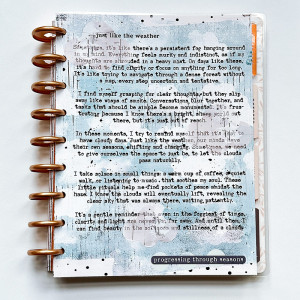 just like the weather
Sometimes, it's like there's a persistent fog hanging around
in my mind. Everything feels murky and indistinct, as if my
thoughts are shrouded in a heavy mist. On days like these,
it's hard to find clarity or focus on anything for too long.
It's like trying to navigate through a dense forest without
a map, every step uncertain and tentative.
I find myself grasping for clear thoughts, but they slip
away like wisps of smoke. Conversations blur together, and
tasks that should be simple become monumental. It's
frustrating because I know there's a bright, sharp world out
there, but it's just out of reach.
In these moments, I try to remind myself that it's okay to
have cloudy days. Just like the weather, our minds have
their own seasons, shifting and changing. Sometimes, we need
to give ourselves the space to just be, to let the clouds
pass naturally.
I take solace in small things: a warm cup of coffee, a quiet
walk, or listening to music that soothes my soul. These
little rituals help me find pockets of peace amidst the
haze. I know the clouds will eventually lift, revealing the
clear sky that was always there, waiting patiently.
It's a gentle reminder that even in the foggiest of times,
clarity and light are never too far away. And until then, I
can find beauty in the softness and stillness of a cloudy
progressing through seasons